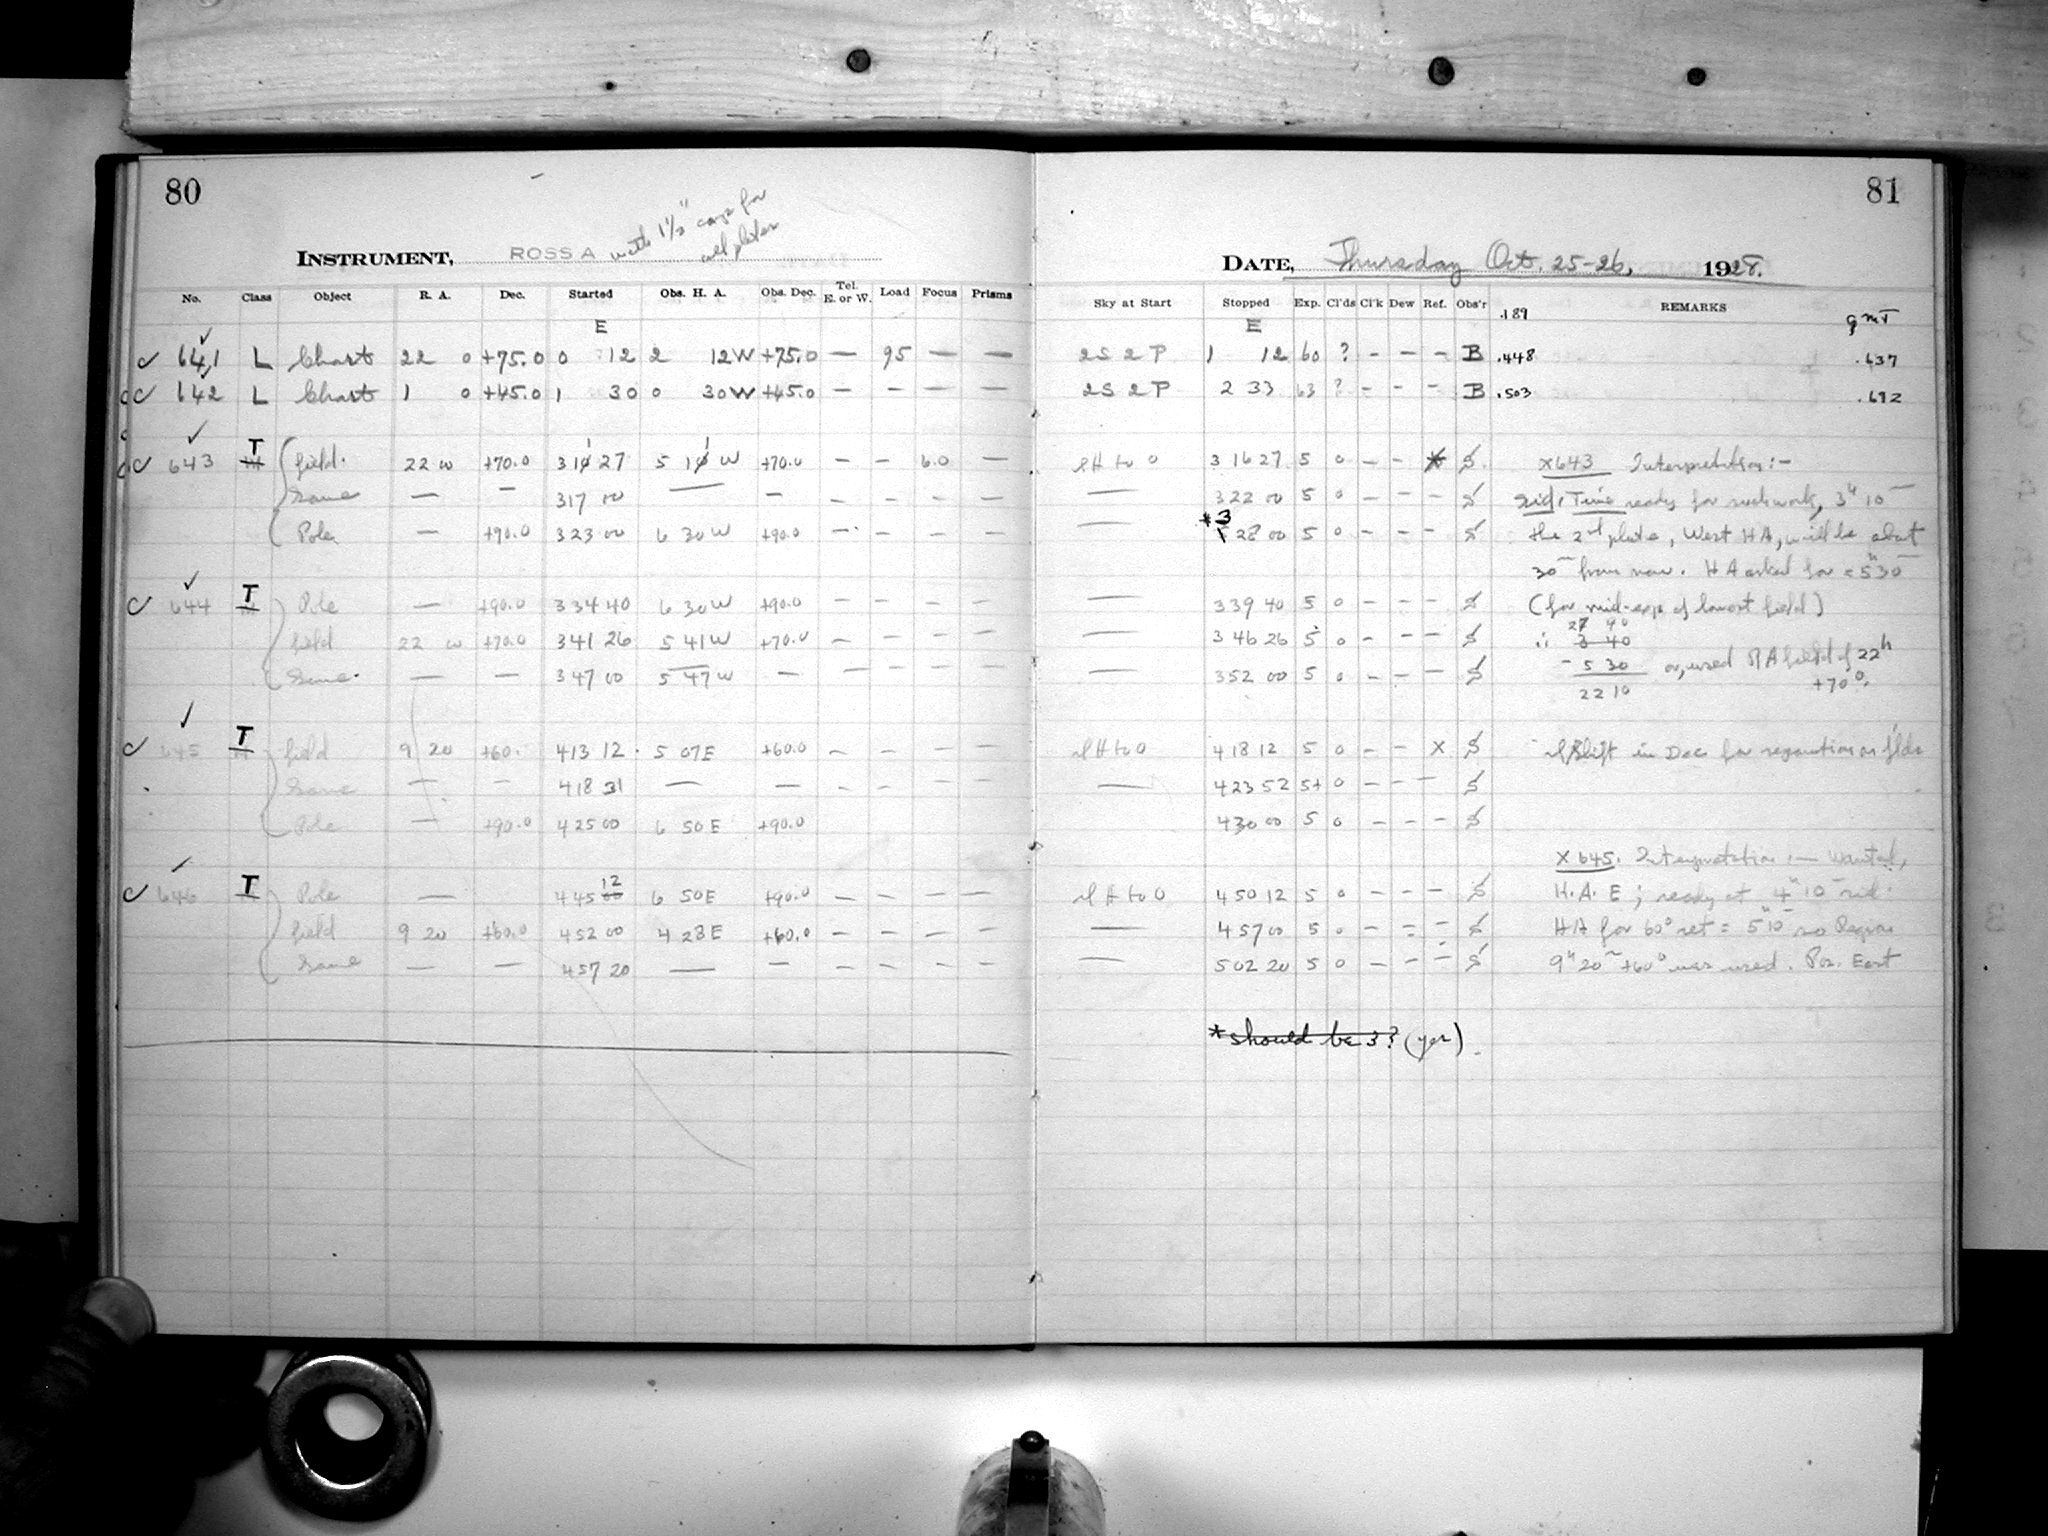 80
81
INSTRUMENT, ROSS A with 1½" cap for
all plates
DATE, Thursday Oct. 25-26, 1928.
No. Class Object R. A. Dec. Started Obs. H. A. Obs. Dec. Tel. E. or W. Load Focus Prisms Sky at Start Stopped Exp. Cl'ds Cl'k Dew Ref. Obs'r .189 REMARKS GMT
E E
641 L Chart 22 0 +75.0 0 12 2 12W +75.0 — 95 — — 2S 2P 1 12 60 ? - - - B .448 .637
642 L Chart 1 0 +45.0 1 30 0 30W +45.0 — — — — 2S 2P 2 33 63 ? - - - B .503 .692
643 T field. 22 +70.0 3 11 27 5 11 W +70.0 — — 6.0 — 3 16 27 5 0 - - * x643 Interpretation:-
Same — — 3 17 00 — — — — — — — 3 22 00 5 0 - - - Sid. Time ready for 3h 10m
Pole — +90.0 3 23 00 6 30W +90.0 — — — — — *3 28 00 5 0 - - - the 2nd plate, West HA, will be about
30m from now. HA asked for = 5h30m
644 T Pole — +90.0 3 34 40 6 30W +90.0 — — — — — 3 39 40 5 0 - - - (for mid-exp of lowest field)
27 40
field 22 +70.0 3 41 26 5 41W +70.0 — — — — — 3 46 26 5 0 - - - ∴ 3 40
Same. — — 3 47 00 5 47W — — — — — — 3 52 00 5 0 - - - - 5 30 used RA field of 22h
22 10 +70°.
645 T field 9 20 +60. 4 13 12 5 07E +60.0 — — — — 4 18 12 5 0 - - x Shift in Dec for
Same — — 4 18 31 — — — — — — — 4 23 52 5+ 0 - - -
Pole — +90.0 4 25 00 6 50E +90.0 4 30 00 5 0 - - -
x 645. Interpretation:— Wanted,
646 T Pole — 4 45 12 6 50E +90.0 — — — — 4 50 12 5 0 - - - H.A. E; ready at 4h10m sid.
field 9 20 +60.0 4 52 00 4 28E +60.0 — — — — — 4 57 00 5 0 - - - HA for 60° set = 5h10m so Region
Same — — 4 57 20 — — — — — — — 5 02 20 5 0 - - - 9h20m +60° was used. Pos. East
*should be 3? (yes).